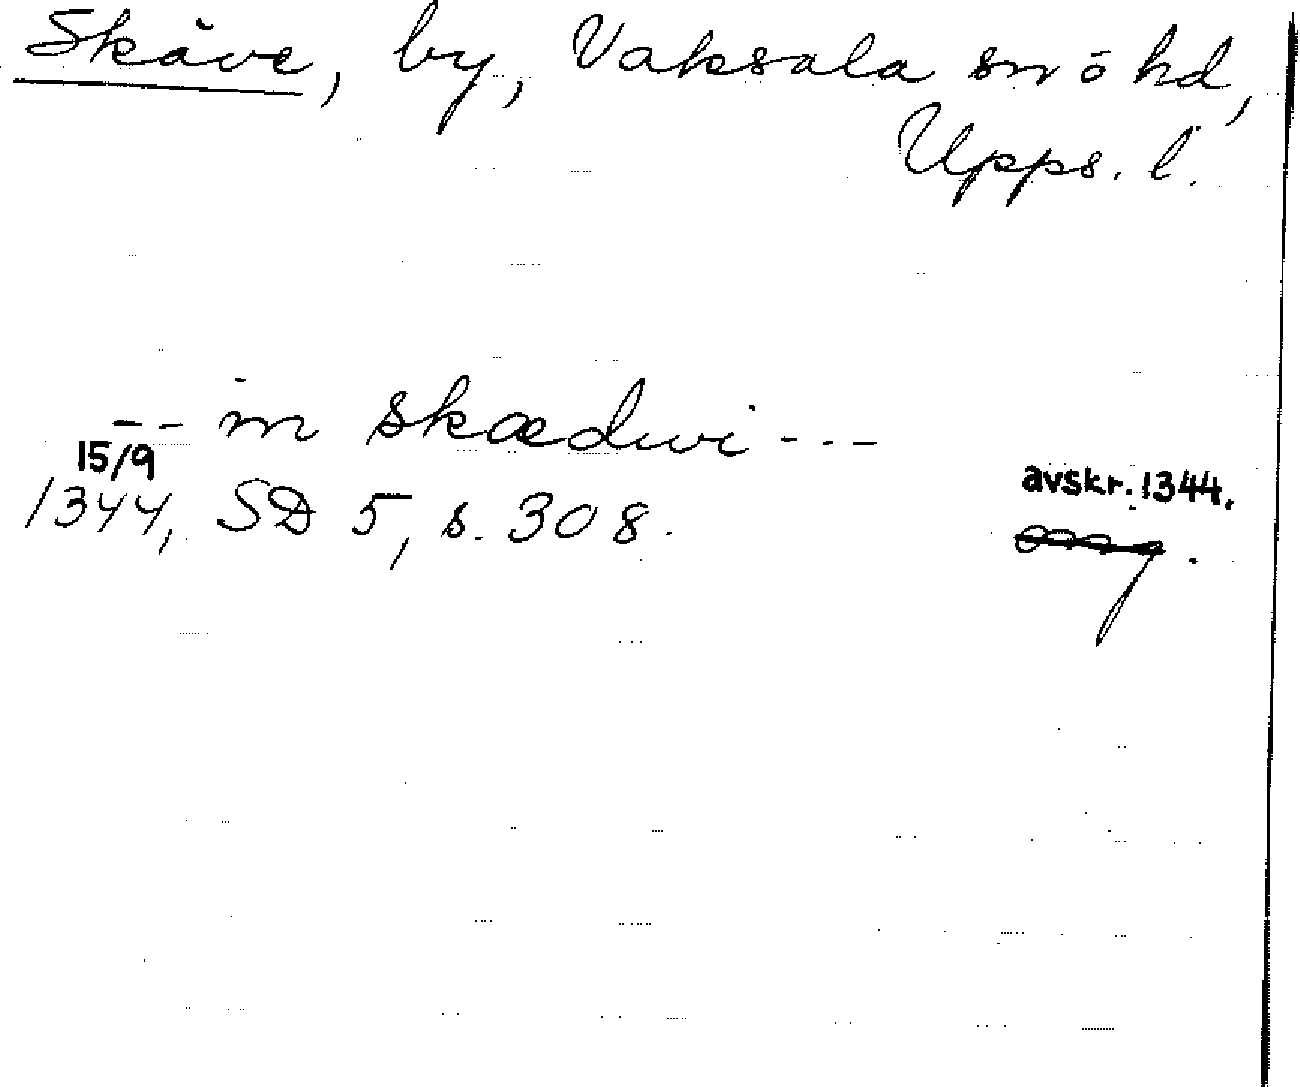 Skäve, by, Vaksala sn o hd,
Upps. l.
-- in skædwi ---
15/9
1344, SD 5, s. 308.
avskr. 1344.